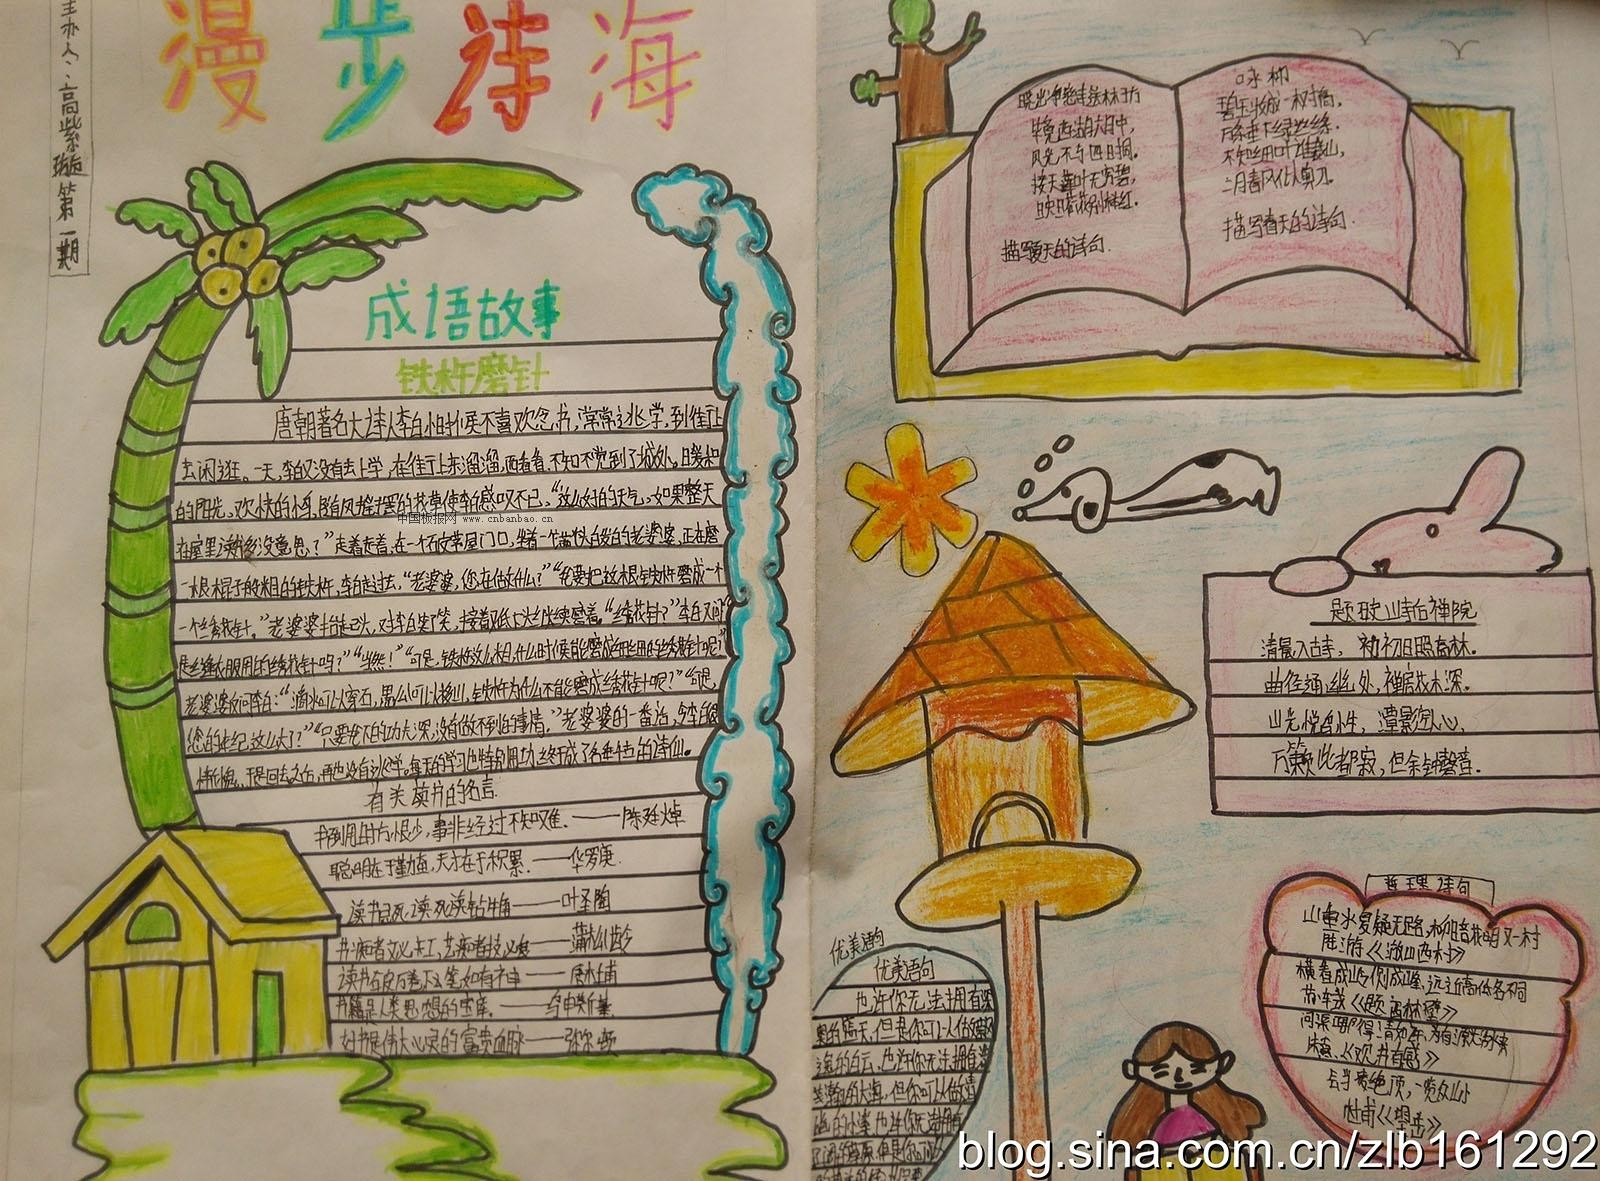 主办人：高紫璇 第一期
漫步诗海
成语故事
铁杵磨针
唐朝著名大诗人李白小时候不喜欢念书,常常逃学,到街上
去闲逛。一天,李白又没有去上学,在街上东溜溜,西看看,不知不觉到了城外。日暖和
的阳光、欢快的小鸟、随风摇摆的花草使李白感叹不已,“这么好的天气,如果整天
在屋里读书多没意思?”走着走着,在一个茅屋门口,坐着一个满头白发的老婆婆,正在磨
一根棍子般粗的铁杵,李白走过去,“老婆婆,您在做什么?”“我要把这根铁杵磨成一个
一个绣花针。”老婆婆抬起头,对李白笑了笑,接着又低下头继续磨着。“绣花针?”李白又问
是缝衣服用的绣花针吗?”“当然!”“可是,铁杵这么粗,什么时候能磨成细细的绣花针呢?”
老婆婆反问李白:“滴水可以穿石,愚公可以移山,铁杵为什么不能磨成绣花针呢?”“可是,
您的年纪这么大了?”“只要我下的功夫深,没有做不到的事情。”老婆婆的一番话,令李白很
惭愧,于是回去之后,再也没有逃学,每天的学习也特别用功,终于成了名垂千古的诗仙。
有关读书的名言
书到用时方恨少,事非经过不知难.——陈廷焯
聪明在于勤奋,天才在于积累.——华罗庚
读书忌死读,死读钻牛角——叶圣陶
书痴者文必工,艺痴者技必良——蒲松龄
读书破万卷下笔如有神——杜甫
书籍是人类思想的宝库.——乌申斯基
好书是伟大心灵的富贵血脉——弥尔顿
中国板报网 www.cnbanbao.cn
晓出净慈寺送林子方
毕竟西湖六月中,
风光不与四时同。
接天莲叶无穷碧,
映日荷花别样红。
描写夏天的诗句.
咏柳
碧玉妆成一树高,
万条垂下绿丝绦.
不知细叶谁裁出,
二月春风似剪刀.
描写春天的诗句.
题破山寺后禅院
清晨入古寺，初初日照高林。
曲径通幽处,禅房花木深。
山光悦鸟性，潭影空人心,
万籁此都寂,但余钟磬音.
优美语句
优美语句
也许你无法拥有深
奥的蓝天,但是你可以做飘
逸的白云,也许你无法拥有
浩瀚的大海,但你可以做清
的小溪 也许你无法拥有
哲理诗句
山重水复疑无路,柳暗花明又一村
陆游《游山西村》
横看成岭侧成峰,远近高低各不同
苏轼《题西林壁》
问渠那得清如许,为有源头活水来
朱熹《观书有感》
会当凌绝顶,一览众山小
杜甫《望岳》
blog.sina.com.cn/zlb161292